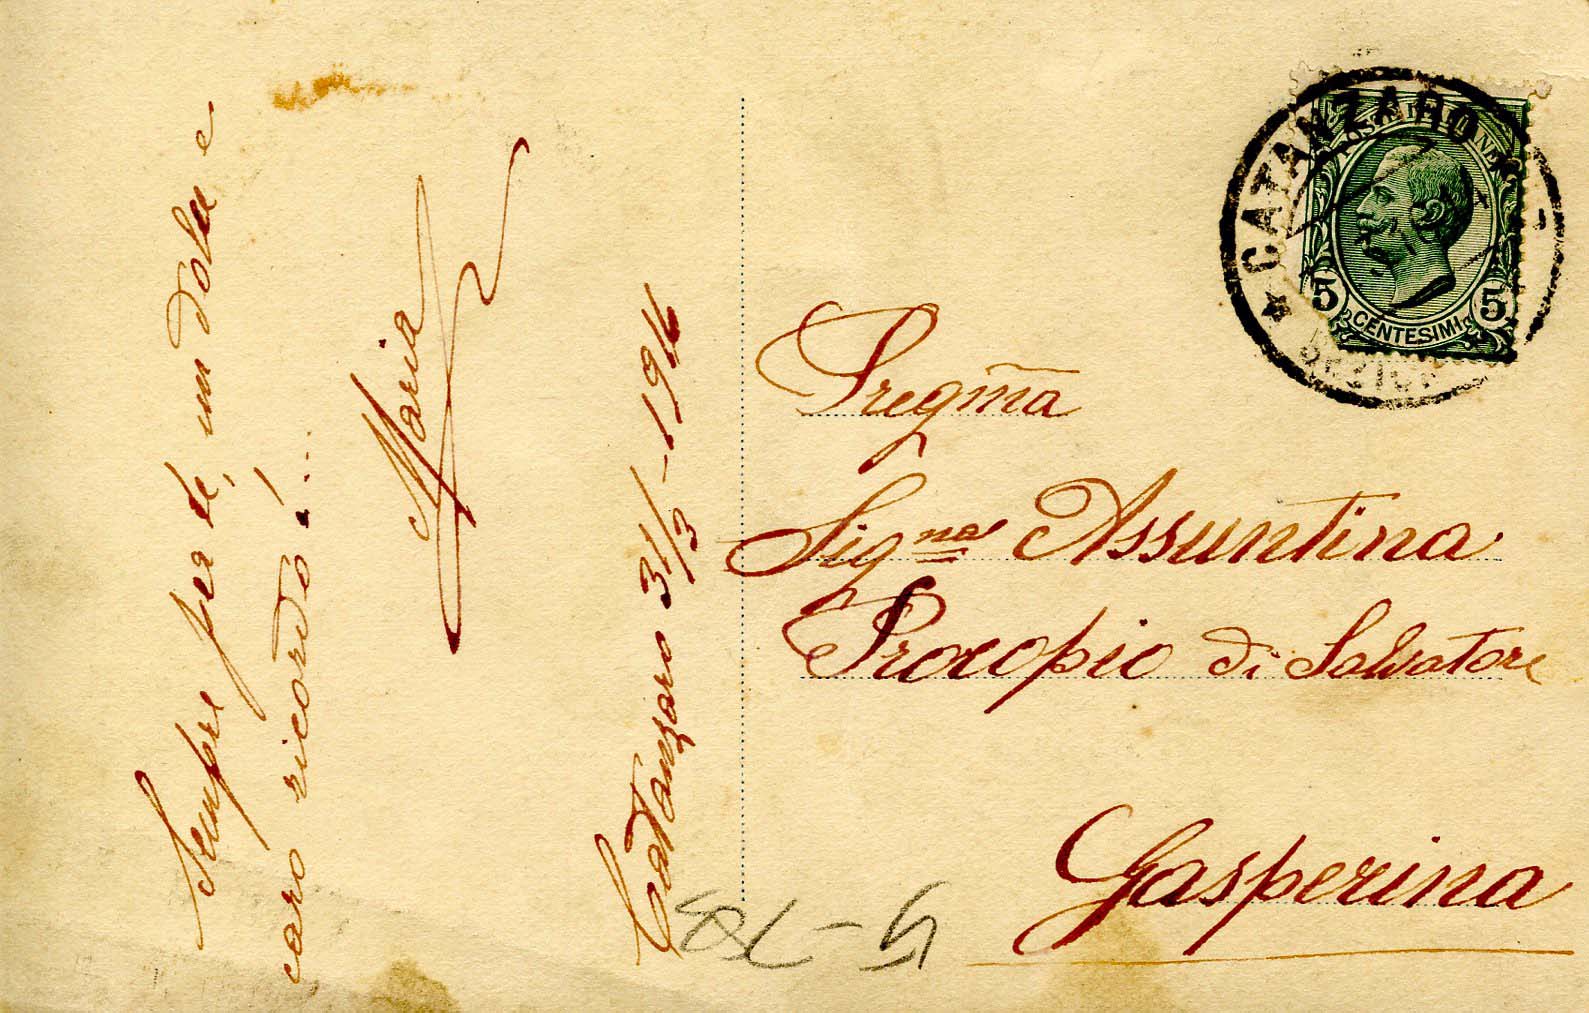 Sempre per te, un dolce e
caro ricordo!...
Maria
Catanzaro 31/3-1916
CATANZARO
POSTE ITALIANE
5 5
CENTESIMI
Pregma
Signa Assuntina
Procopio di Salvatore
Gasperina